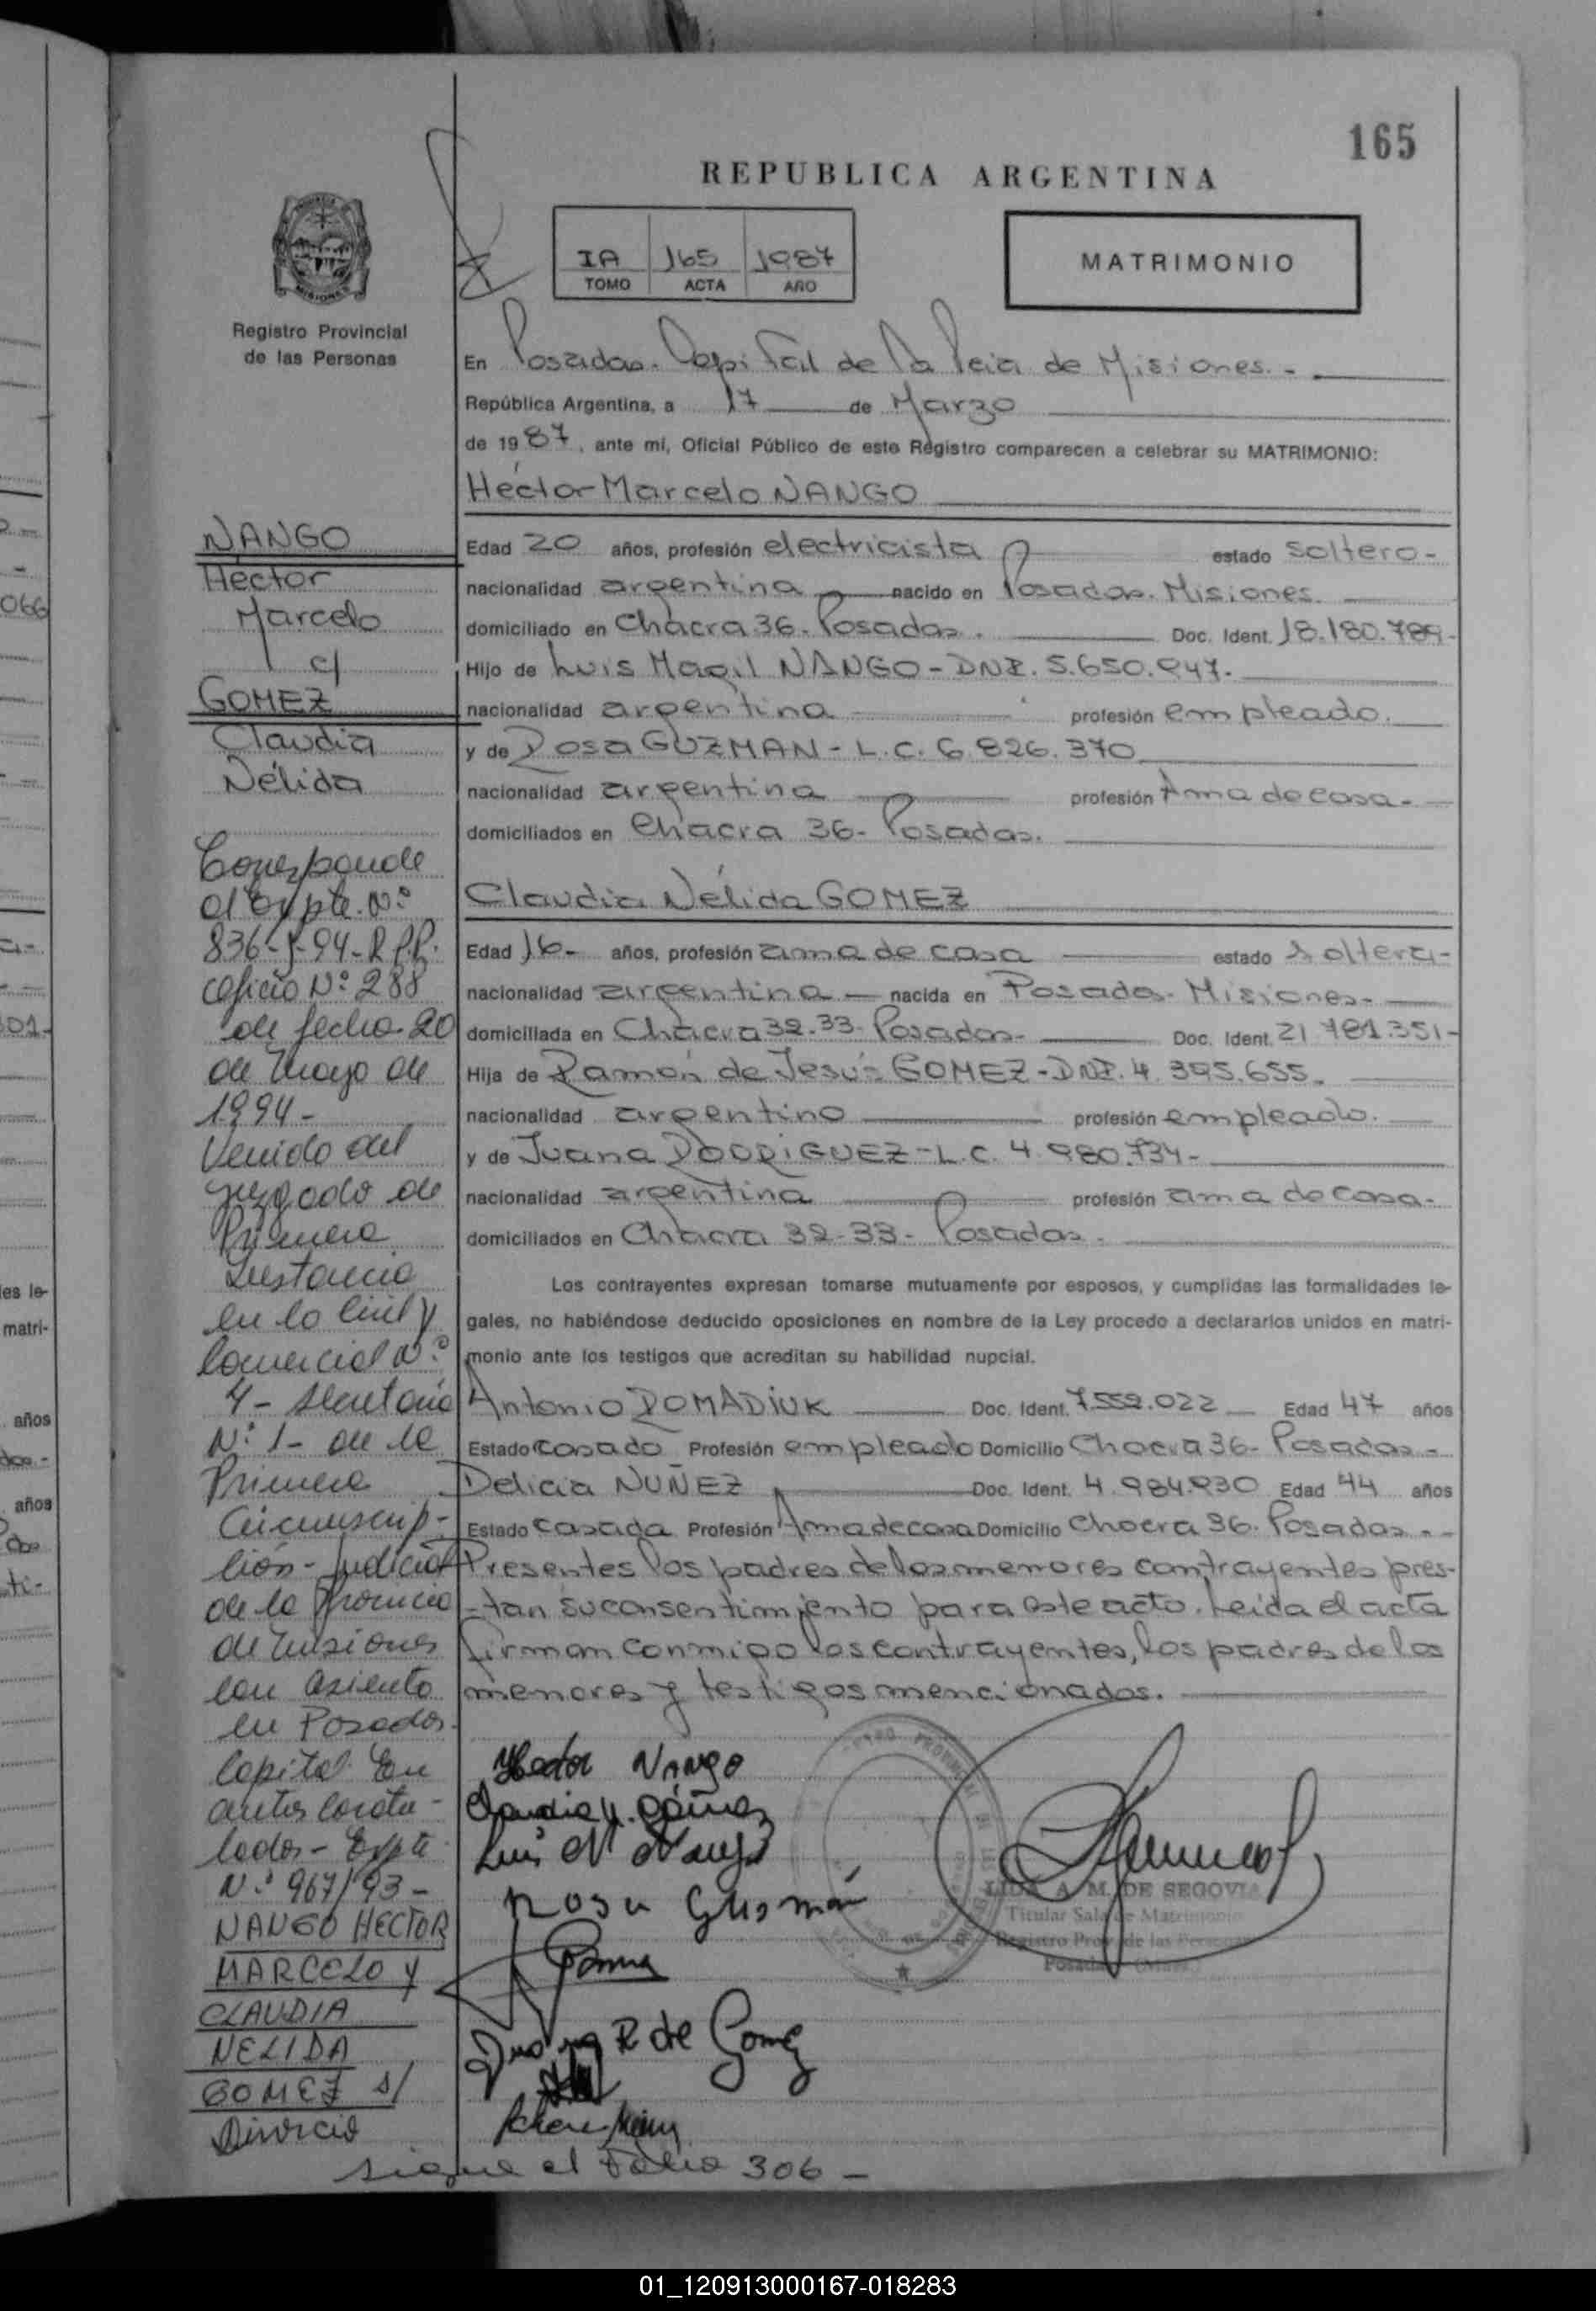 165
REPUBLICA ARGENTINA
IA 165 1987
TOMO ACTA AÑO
MATRIMONIO
MISIONES
Registro Provincial
de las Personas
En Posadas. Capital de la Pcia de Misiones. -
República Argentina, a 17 de Marzo
de 1987, ante mí, Oficial Público de este Registro comparecen a celebrar su MATRIMONIO:
Héctor Marcelo NANGO
Edad 20 años, profesión electricista estado soltero-
nacionalidad argentina nacido en Posadas. Misiones.
domiciliado en Chacra 36. Posadas. Doc. Ident. 18.180.789-
Hijo de Luis Magil NANGO - DNI. 5.650.947.
nacionalidad argentina profesión empleado.
y de Rosa GUZMAN - L.C. 6.826.370
nacionalidad argentina profesión Ama de casa.
domiciliados en Chacra 36- Posadas.
Claudia Nélida GOMEZ
Edad 16- años, profesión ama de casa estado soltera-
nacionalidad argentina - nacida en Posadas. Misiones-
domiciliada en Chacra 32.33- Posadas- Doc. Ident. 21.781.351-
Hija de Ramón de Jesús GOMEZ - DNI. 4.395.655.
nacionalidad argentino profesión empleado.
y de Juana RODRIGUEZ - L.C. 4.980.734-
nacionalidad argentina profesión ama de casa-
domiciliados en Chacra 32-33- Posadas.
Los contrayentes expresan tomarse mutuamente por esposos, y cumplidas las formalidades le-
gales, no habiéndose deducido oposiciones en nombre de la Ley procedo a declararlos unidos en matri-
monio ante los testigos que acreditan su habilidad nupcial.
Antonio ROMADIUK Doc. Ident. 7.552.022 Edad 47 años
Estado casado Profesión empleado Domicilio Chacra 36- Posadas-
Delicia NUÑEZ Doc. Ident. 4.984.930 Edad 44 años
Estado casada Profesión Ama de casa Domicilio Chacra 36. Posadas.-
Presentes los padres de los menores contrayentes pres-
-tan su consentimiento para este acto. Leida el acta
firman conmigo los contrayentes, los padres de los
menores y testigos mencionados.
Hector NANGO
Claudia N. Gómez
Luis M Nango
Rosa Gusmán
Juana R de Gomez
LIDA A. M. DE SEGOVIA
Titular Sala de Matrimonio
Registro Prov. de las Personas
Posadas (Mnes.)
NANGO
Héctor
Marcelo
c/
GOMEZ
Claudia
Nélida
Corresponde
al Expte. Nº
836-J-94-R.P.P.
oficio Nº 288
de fecha 20
de Mayo de
1994-
Venido del
Juzgado de
Primera
Instancia
en lo Civil y
Comercial Nº
4- Secretaria
Nº 1- de la
Primera
Circunscrip-
ción- Judicial
de la Provincia
de Misiones
con asiento
en Posadas.
Capital. En
autos caratu-
lados- Expte
Nº 967/93-
NANGO HECTOR
MARCELO Y
CLAUDIA
NELIDA
GOMEZ s/
Divorcio
sigue al Folio 306 -
066
01-
es le-
matri-
años
años
ti-
01_120913000167-018283